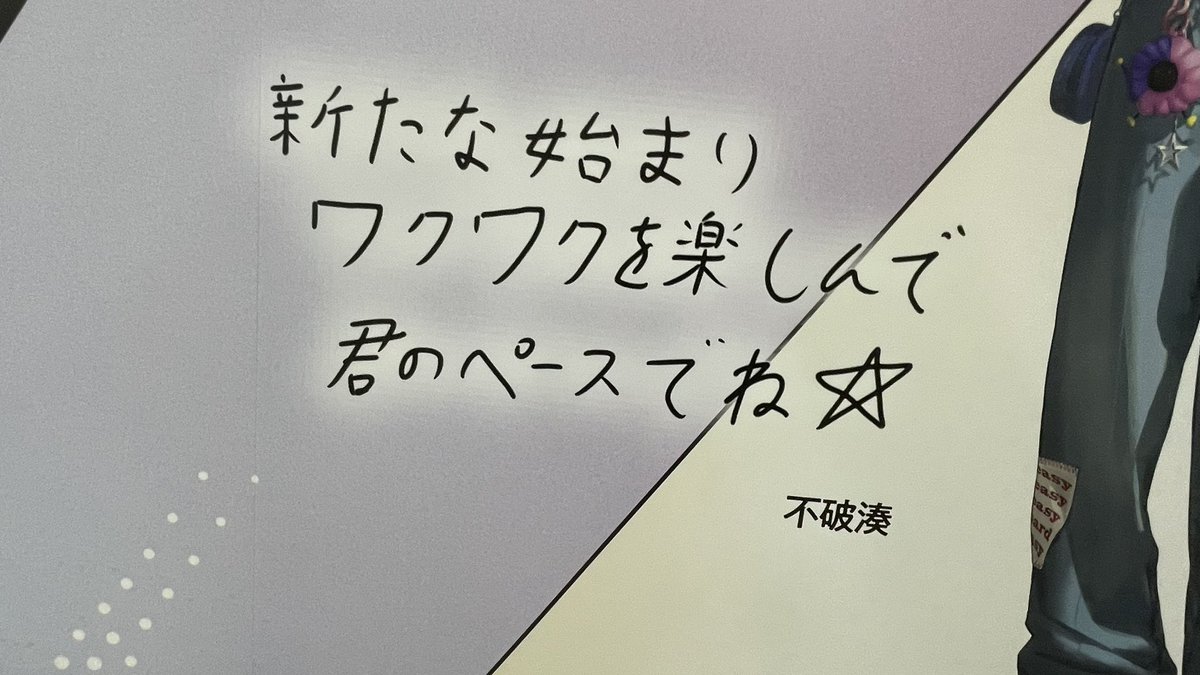 新たな始まり
ワクワクを楽しんで
君のペースでね☆
不破湊
easy
easy
easy